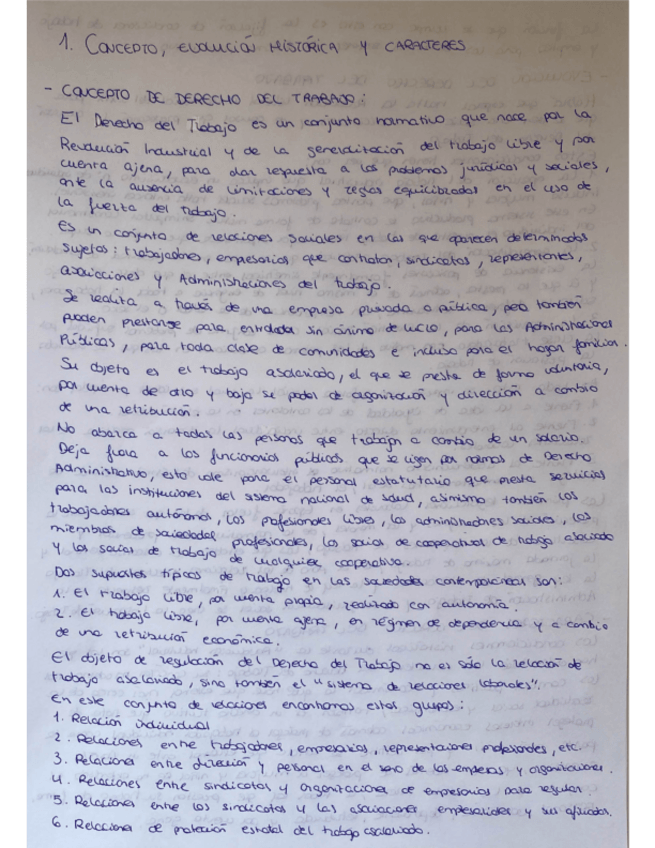 1. CONCEPTO, EVOLUCIÓN HISTÓRICA Y CARACTERES
- CONCEPTO DE DERECHO DEL TRABAJO:
El Derecho del Trabajo es un conjunto normativo que nace por la
Revolución Industrial y de la generalización del trabajo libre y por
cuenta ajena, para dar respuesta a los problemas jurídicos y sociales,
ante la ausencia de limitaciones y reglas equilibradas en el uso de
la fuerza del trabajo.
Es un conjunto de relaciones sociales en las que aparecen determinados
sujetos: trabajadores, empresarios que contratan, sindicatos, representantes,
asociaciones y Administraciones del trabajo.
Se realiza a través de una empresa privada o pública, pero también
pueden prestarse para entidades sin ánimo de lucro, para las Administraciones
Públicas, para toda clase de comunidades e incluso para el hogar familiar.
Su objeto es el trabajo asalariado, el que se presta de forma voluntaria,
por cuenta de otro y bajo su poder de organización y dirección a cambio
de una retribución.
No abarca a todas las personas que trabajan a cambio de un salario.
Deja fuera a los funcionarios públicos que se rigen por normas de Derecho
Administrativo, esto vale para el personal estatutario que presta servicios
para las instituciones del sistema nacional de salud, asimismo también los
trabajadores autónomos, los profesionales libres, los administradores sociales, los
miembros de sociedades profesionales, los socios de cooperativas de trabajo asociado
y los socios de trabajo de cualquier cooperativa.
Dos supuestos típicos de trabajo en las sociedades contemporáneas son:
1. El trabajo libre, por cuenta propia, realizado con autonomía.
2. El trabajo libre, por cuenta ajena, en régimen de dependencia y a cambio
de una retribución económica.
El objeto de regulación del Derecho del Trabajo no es sólo la relación de
trabajo asalariado, sino también el "sistema de relaciones laborales".
En este conjunto de relaciones encontramos estos grupos:
1. Relación individual
2. Relaciones entre trabajadores, empresarios, representaciones profesionales, etc.
3. Relaciones entre dirección y personal en el seno de las empresas y organizaciones.
4. Relaciones entre sindicatos y organizaciones de empresarios para regular
5. Relaciones entre los sindicatos y las asociaciones empresariales y sus afiliados.
6. Relaciones de protección estatal del trabajo asalariado.